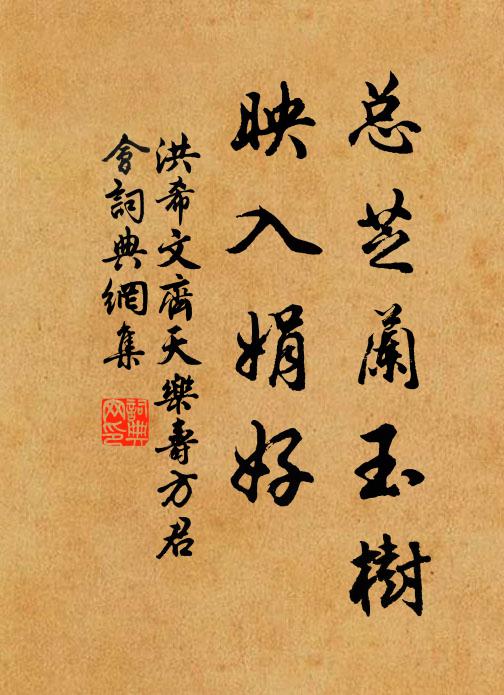 总芝蘭玉樹
映入娟好
洪希文齊天樂壽方君
會詞典網集
詞典
网印